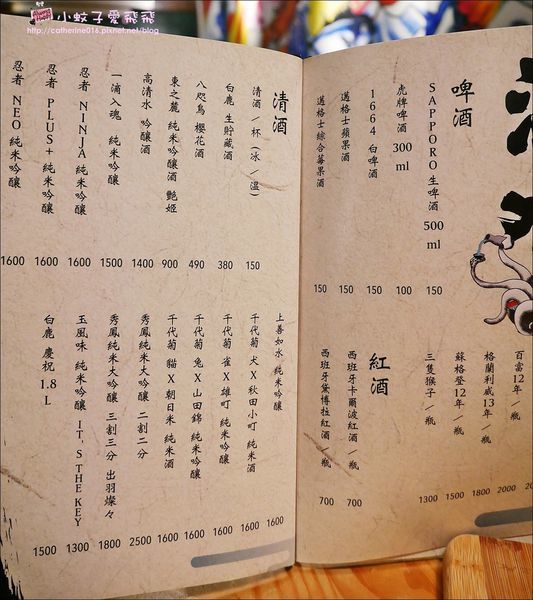 小蚊子愛飛飛
http://catherine016.pixnet.net/blog
啤酒
SAPPORO 生啤酒 500 ml 150
虎牌啤酒 300 ml 100
1664 白啤酒 150
邁格士蘋果酒 150
邁格士綜合莓果酒 150
百富12年/瓶
格蘭利威13年/瓶 2000
蘇格登12年/瓶 1800
三隻猴子/瓶 1500
1300
紅酒
西班牙卡爾波紅酒/瓶 700
西班牙黛博拉紅酒/瓶 700
清酒
清酒/杯(冰/溫) 150
白鹿 生貯藏酒 380
八咫烏 櫻花酒 490
東之麓 純米吟釀酒 艷姬 900
高清水 吟釀酒 1400
一滴入魂 純米吟釀 1500
忍者 NINJA 純米吟釀 1600
忍者 PLUS+ 純米吟釀 1600
忍者 NEO 純米吟釀 1600
上善如水 純米吟釀 1600
千代菊 犬X秋田小町 純米酒 1600
千代菊 雀X雄町 純米吟釀 1600
千代菊 兔X山田錦 純米吟釀 1600
千代菊 貓X朝日米 純米酒 1600
秀鳳純米大吟釀 二割二分 2500
秀鳳純米大吟釀 三割三分 出羽燦々 1800
玉風味 純米吟釀 IT'S THE KEY 1300
白鹿 慶祝 1.8 L 1500